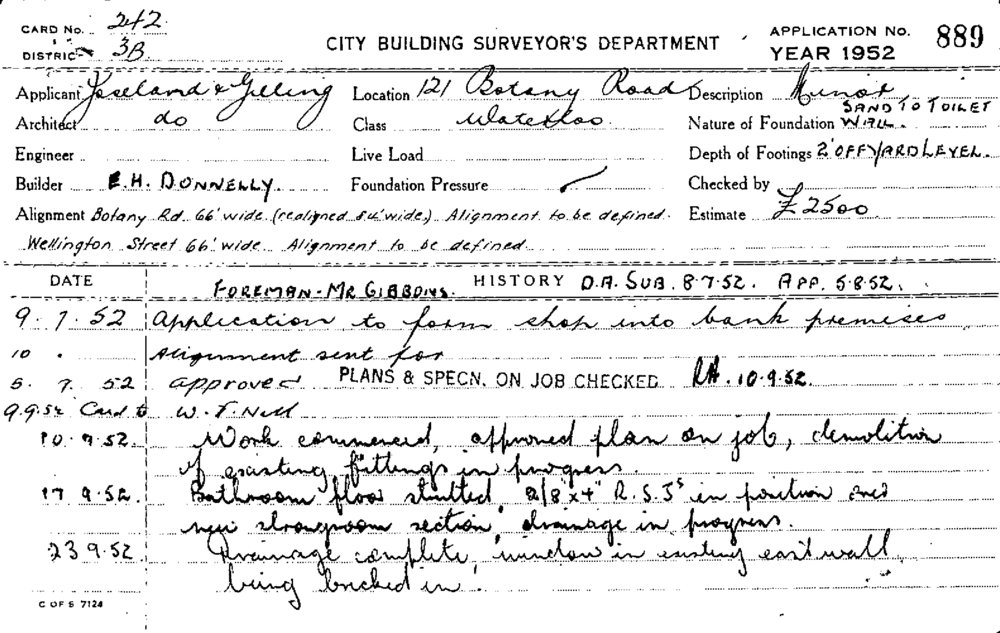 CARD No. 242
DISTRICT 3B
CITY BUILDING SURVEYOR'S DEPARTMENT
APPLICATION No. 889
YEAR 1952
Applicant Joseland & Gilling Location 121 Botany Road Description Minor
Architect do Class Waterloo Nature of Foundation SAND TO TOILET WALL.
Engineer Live Load Depth of Footings 2' OFF YARD LEVEL.
Builder E.H. DONNELLY. Foundation Pressure Checked by
Alignment Botany Rd. 66' wide (realigned 84' wide.) Alignment to be defined. Estimate £2500
Wellington Street 66' wide. Alignment to be defined
DATE FOREMAN - MR GIBBONS. HISTORY D.A. SUB. 8-7-52. APP. 5-8-52.
9. 7. 52 Application to form shop into bank premises
10 . Alignment sent for
5. 7. 52 approved PLANS & SPECN. ON JOB CHECKED 10.9.52.
9.9.52 Card to W.
10.9.52. Work commenced, approved plan on job, demolition
of existing fittings in progress.
17 9.52. Bathroom floor strutted 2/8"x4" R.S.J's in position and
new strongroom section, drainage in progress.
23 9.52 Drainage complete, window in existing east wall
being bricked in.
C OF S 7124